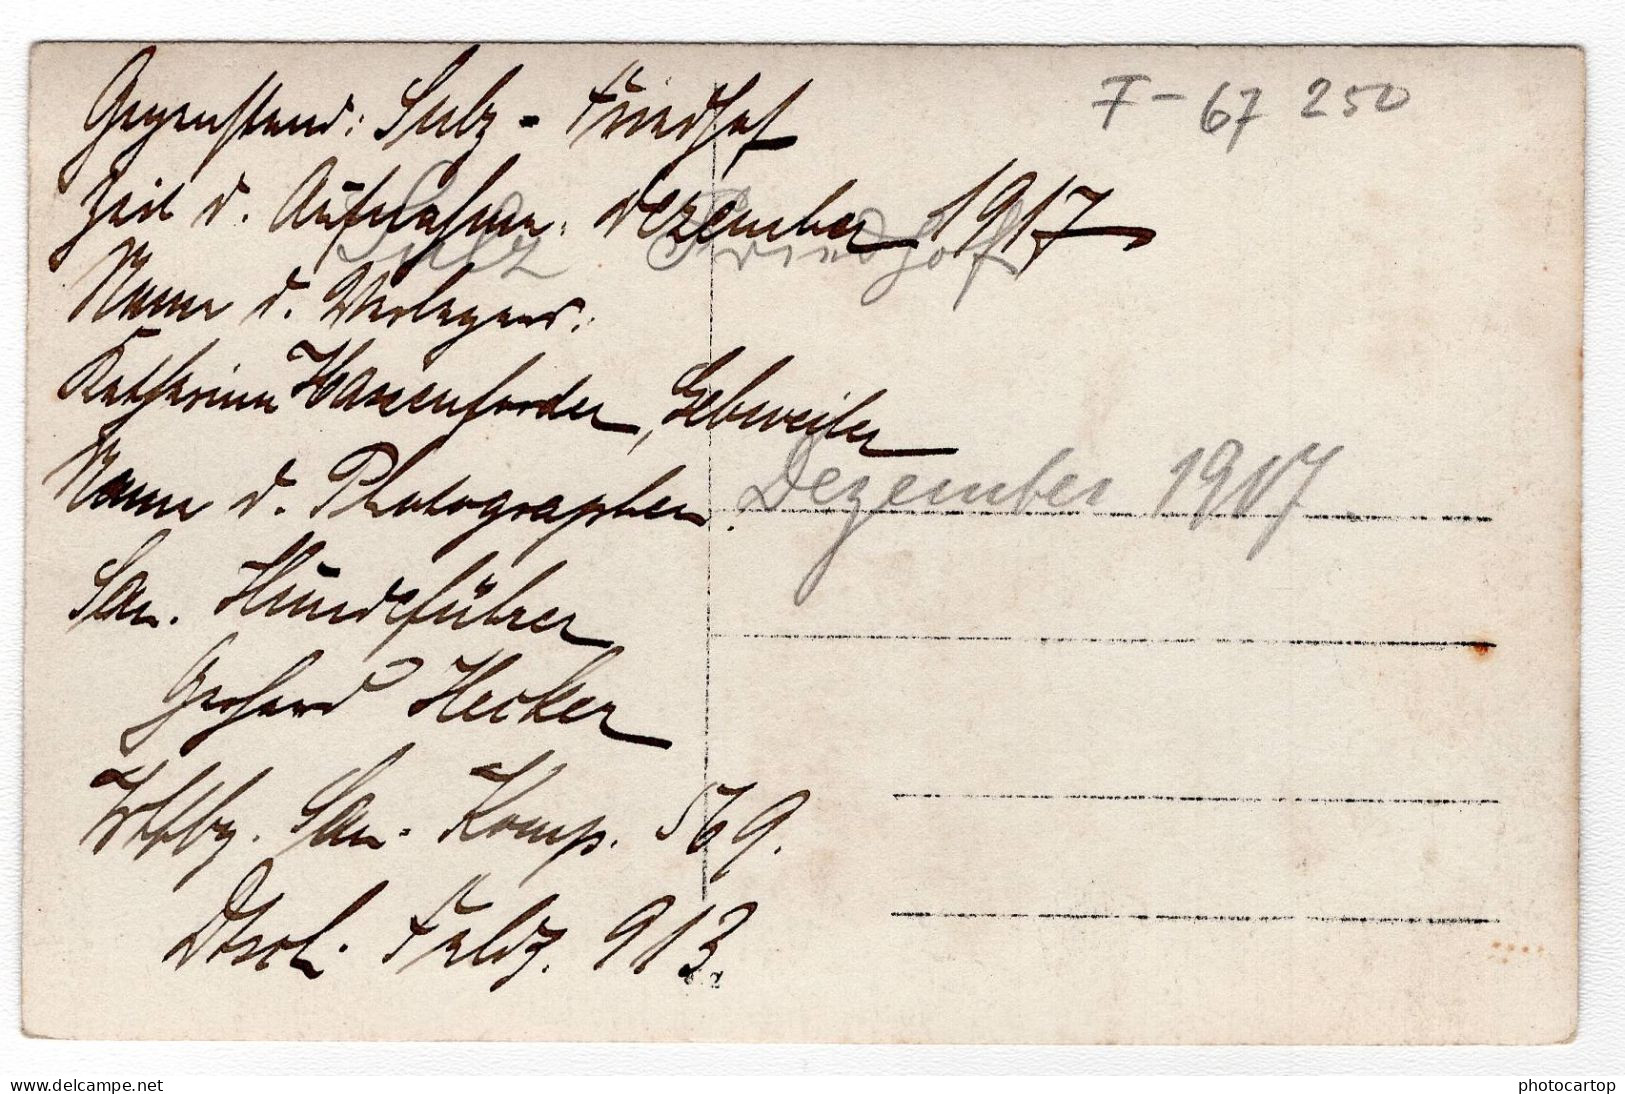 Gegenstand: Sulz - Friedhof
Zeit d. Aufnahme: Dezember 1917
Name d. Verlegers:
Katharina Hassenforder, Gebweiler
Name d. Photographen.
San. Hundeführer
Gerhard Hecker
San. Komp. 569.
Dtsch. Feldp. 913.
F - 67 250
Sulz Friedhof
Dezember 1917.
delcampe.net
photocartop